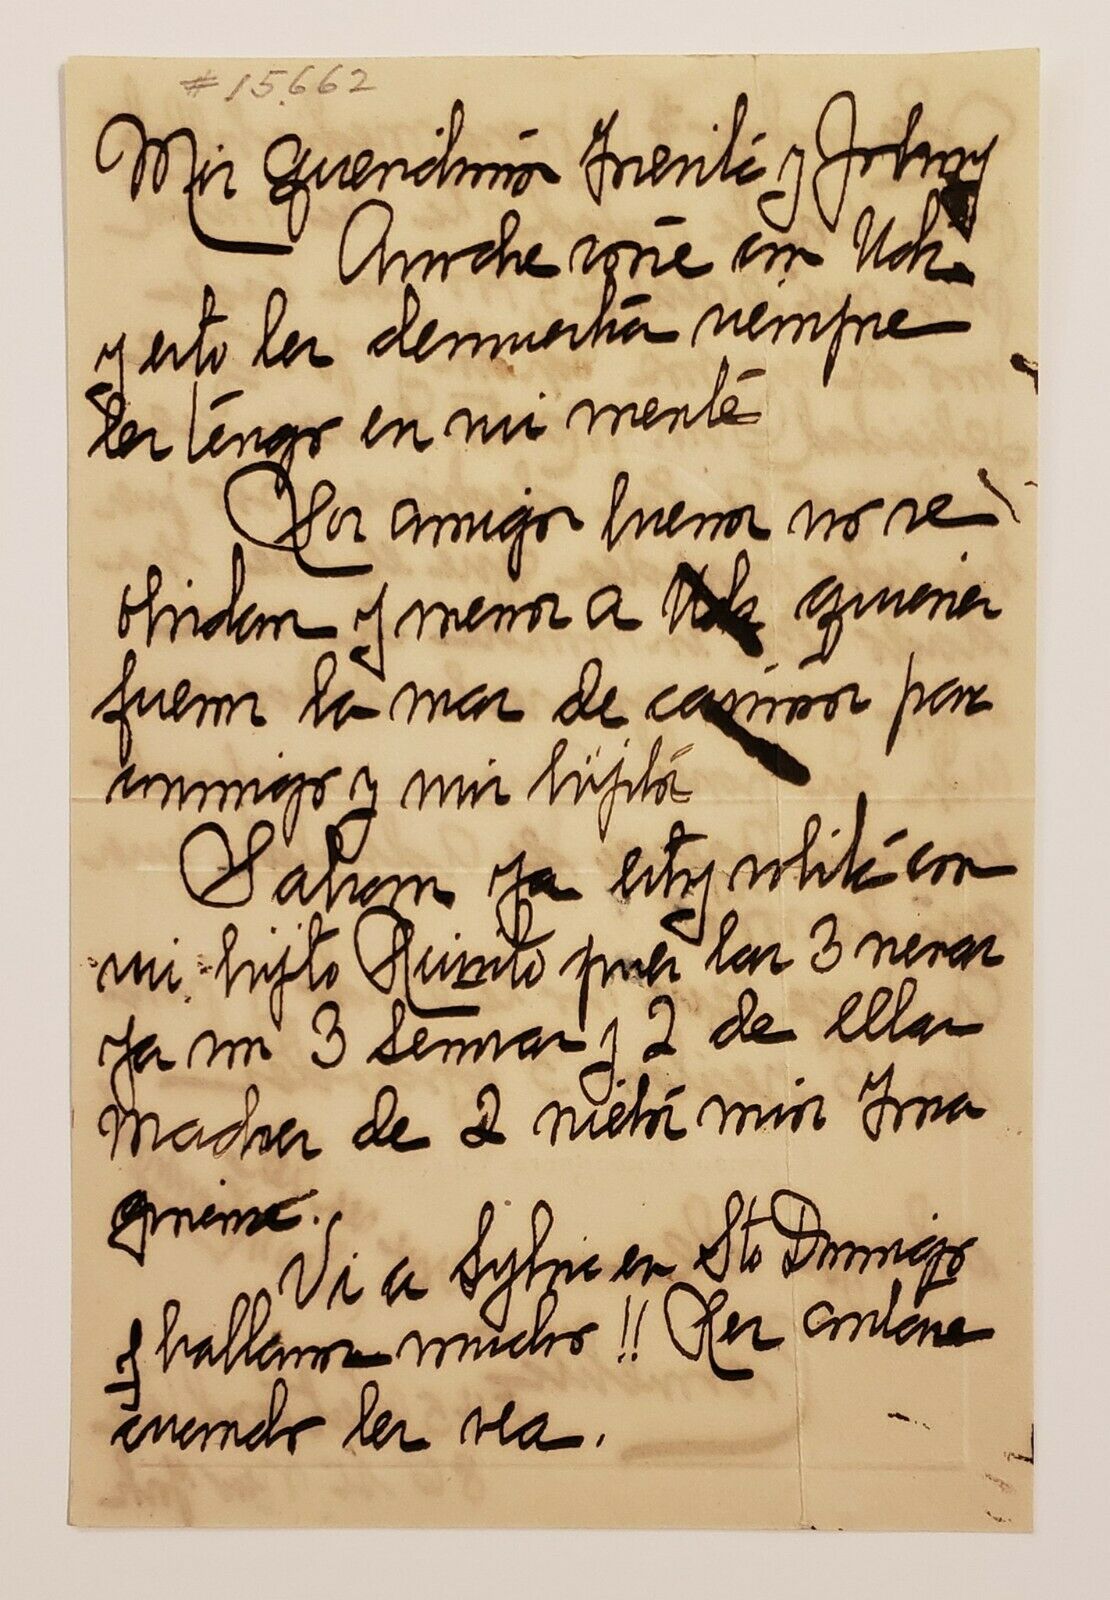 #15.662
Mis queridisimos Inesita y Johnny
Anoche soñe con Uds.
y esto les demuestra siempre
les tengo en mi mente
Los amigos buenos no se
olvidan y menos a Uds quienes
fueron la mar de cariñosos para
conmigo y mis hijitos
Sabran ya estoy solita con
mi hijito pues las 3 nenas
ya son 3 señoras y 2 de ellas
madres de 2 nietos mios Ima
ginense.
Vi a Sylvia en Sto Domingo
y hablamos mucho!! Les contare
cuando les vea.